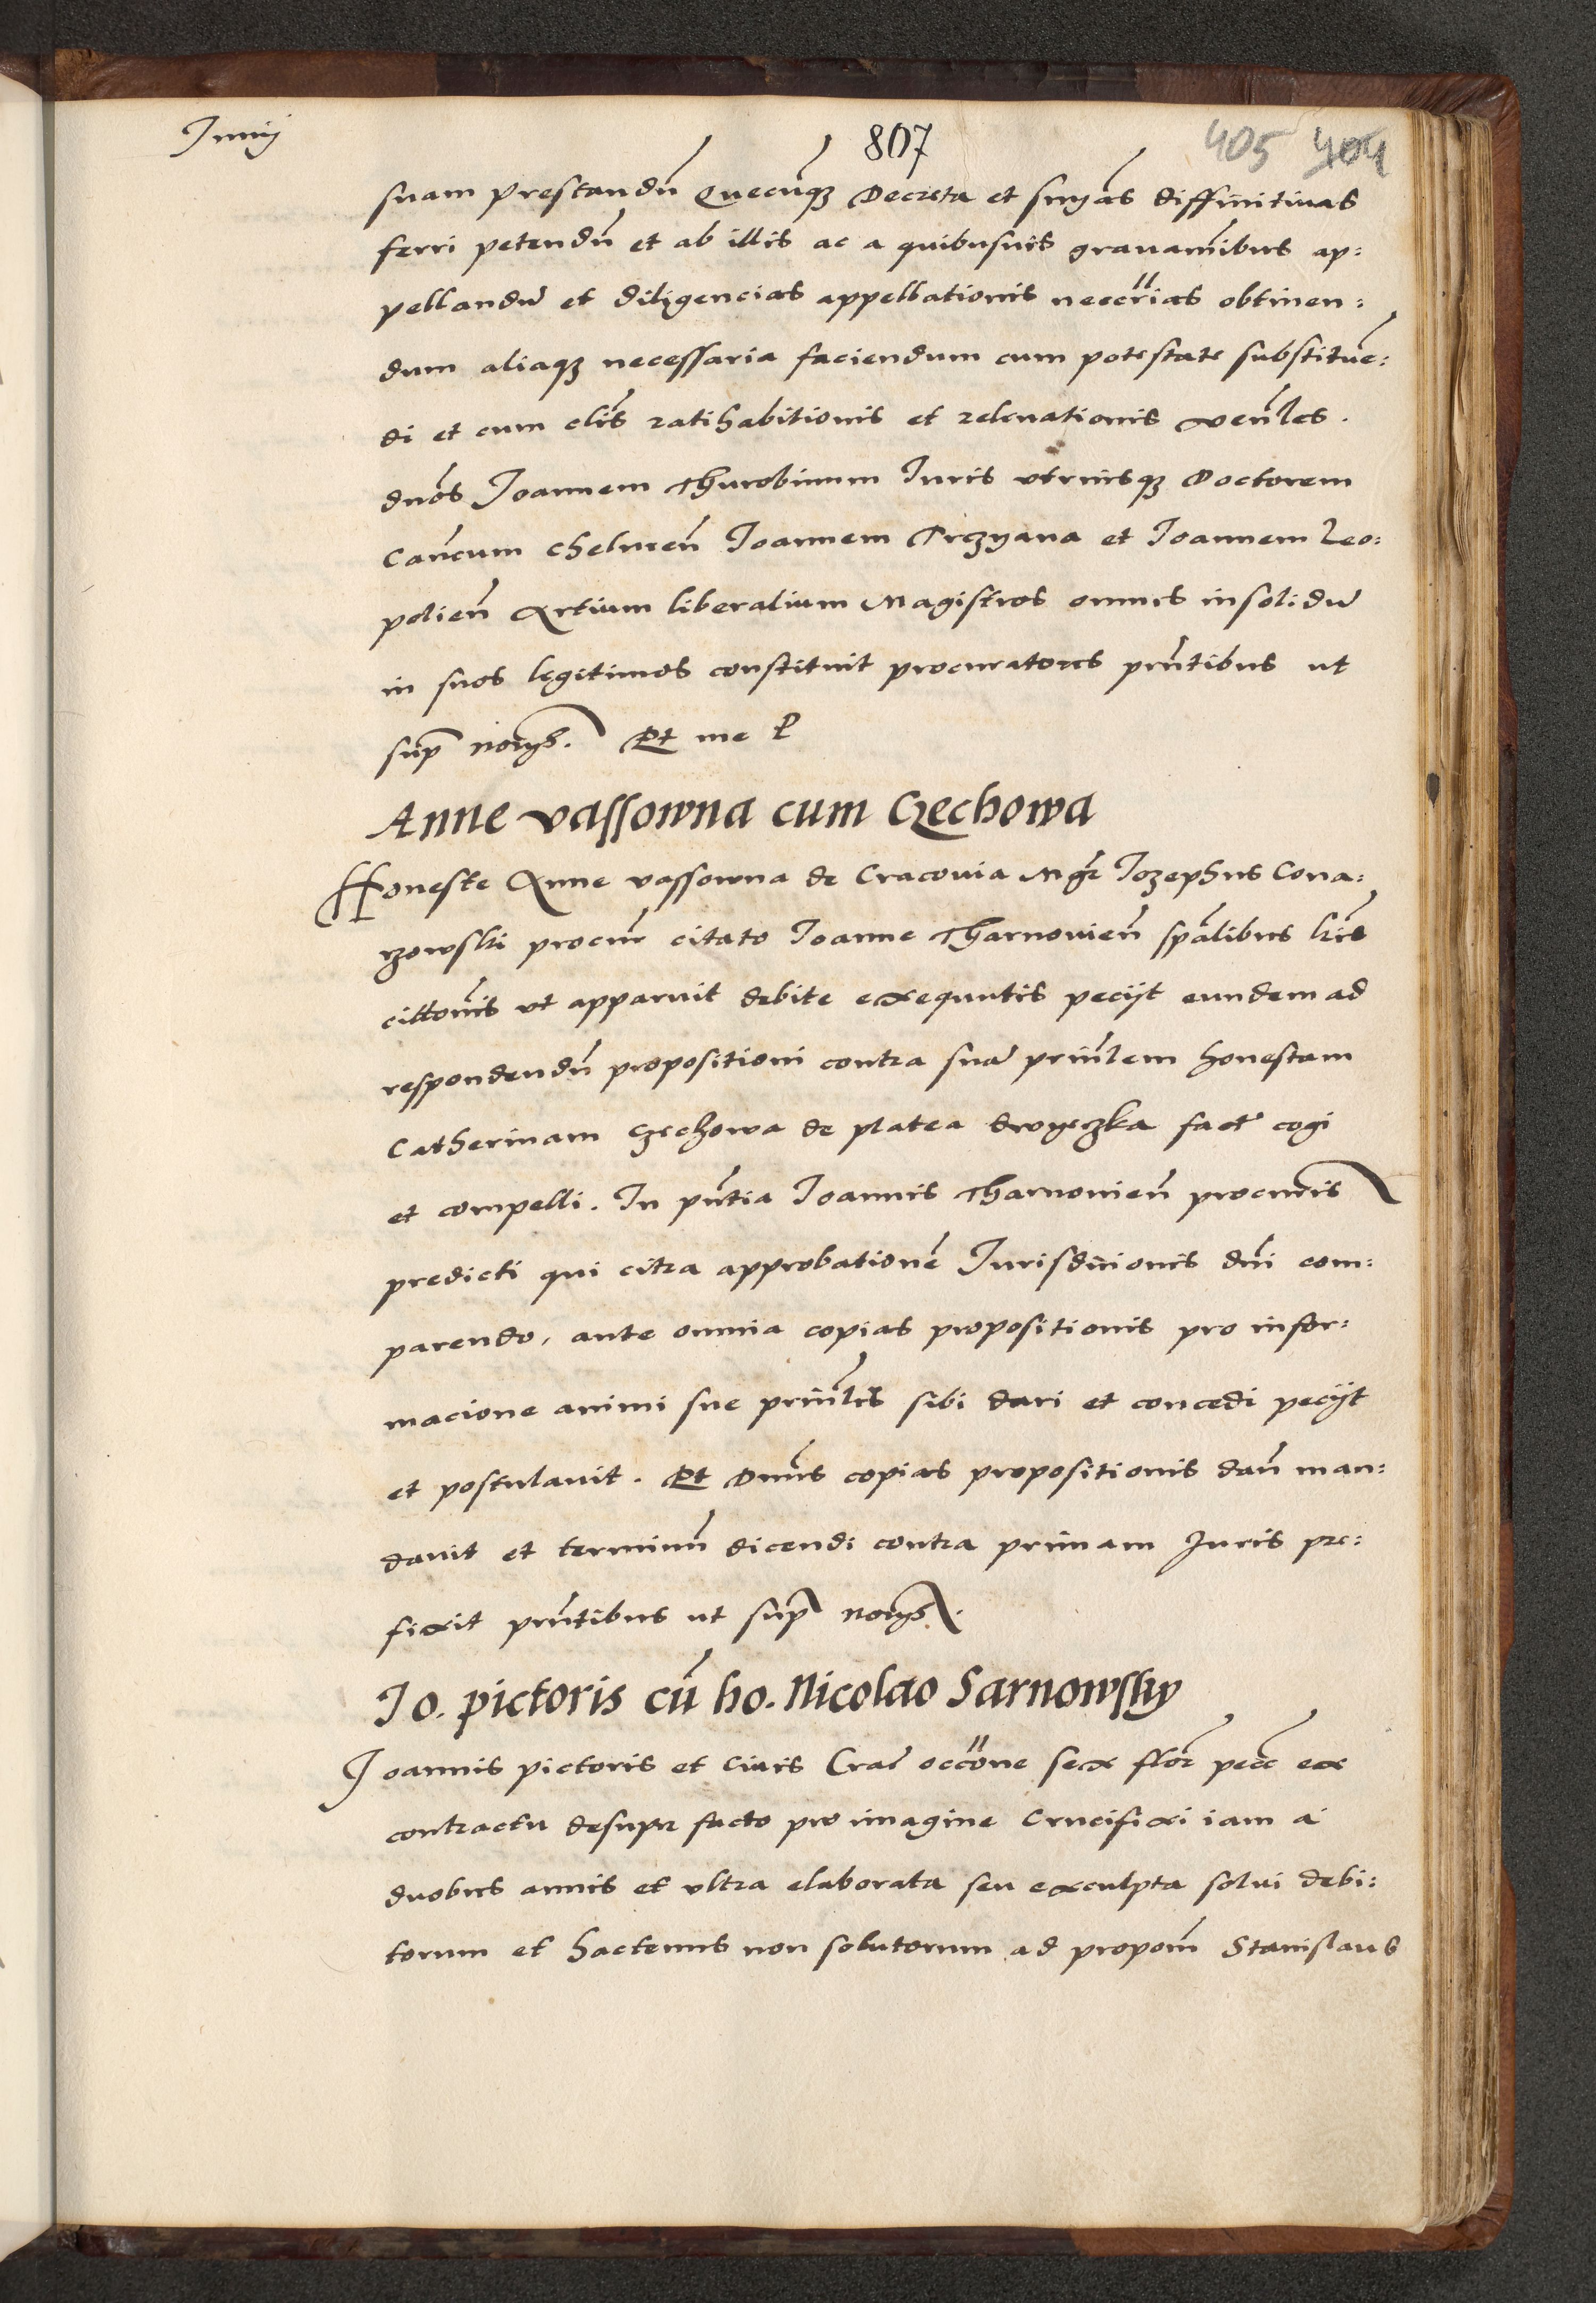 Junij
807
405 404
suam prestandũ Quecũqʒ Decreta et snÿas diffinitiuas
ferri petendũ et ab illis ac a quibusuis grauamĩbus ap:
pellandũ et diligencias appellationis neccrias obtinen:
dum aliaqʒ necessaria faciendum cum potestate substituẽ:
di et cum clĩs ratihabitionis et releuationis Venles.
dnos Joannem Thurobinum Juris vtriusqʒ Doctorem
Cancum chelmeñ Joannem Trzyana et Joannem Leo:
polieñ Artium liberalium Magistros omnes insolidũ
in suos legitimos constituit procuratores pñtibus ut
supᷓ notijs. Et me P
Anne vassowna cum Czechowa
Honeste Anne vassowna de Cracouia Mgr̃ Jozephus Cona:
rzowski procur̃ citato Joanne Tharnouieñ spãlibus lr̃is
cittonis vt apparuit debite exequutis pecijt eundem ad
respondendũ propositioni contra suã prinlem honestam
Catherinam Czechowa de platea dwyeczka fact̃ cogi
et compelli. In pñtia Joannis Tharnouieñ procuris
predicti qui citra approbationẽ Jurisdicionis dñi com:
parendo, ante omnia copias propositionis pro infor:
macione animi sue prinlis sibi dari et concedi pecijt
et postulauit. Et Dnus copias propositionis dañ man:
dauit et terminũ dicendi contra primam Juris pre:
fixit pñtibus ut supᷓ notijs.
Jo. pictoris cũ ho. Nicolao Sarnowsky
Joannis pictoris et Ciuis Crac̃ occõne sex flor̃ pecc̃ ex
contractu desuper facto pro imagine Crucifixi iam a
duobus annis et vltra elaborata seu exculpta solui debi:
torum et hactenus non solutorum ad propom̃ Stanislaus